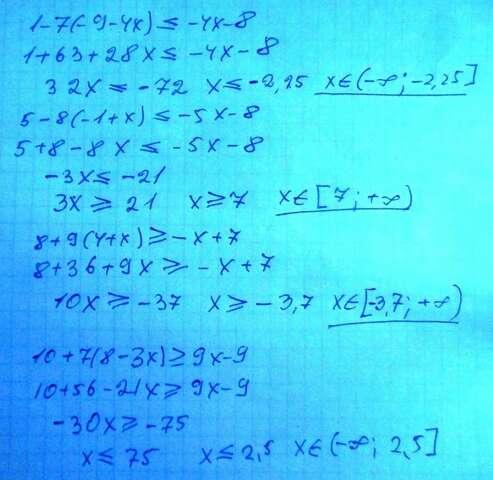 1-7(-9-4x) ≤ -4x-8
1+63+28x ≤ -4x-8
32x ≤ -72 x ≤ -2,25 x∈(-∞; -2,25]
5-8(-1+x) ≤ -5x-8
5+8-8x ≤ -5x-8
-3x ≤ -21
3x ≥ 21 x ≥ 7 x∈[7; +∞)
8+9(4+x) ≥ -x+7
8+36+9x ≥ -x+7
10x ≥ -37 x ≥ -3,7 x∈[-3,7; +∞)
10+7(8-3x) ≥ 9x-9
10+56-21x ≥ 9x-9
-30x ≥ -75
x ≤ 75 x ≤ 2,5 x∈(-∞; 2,5]